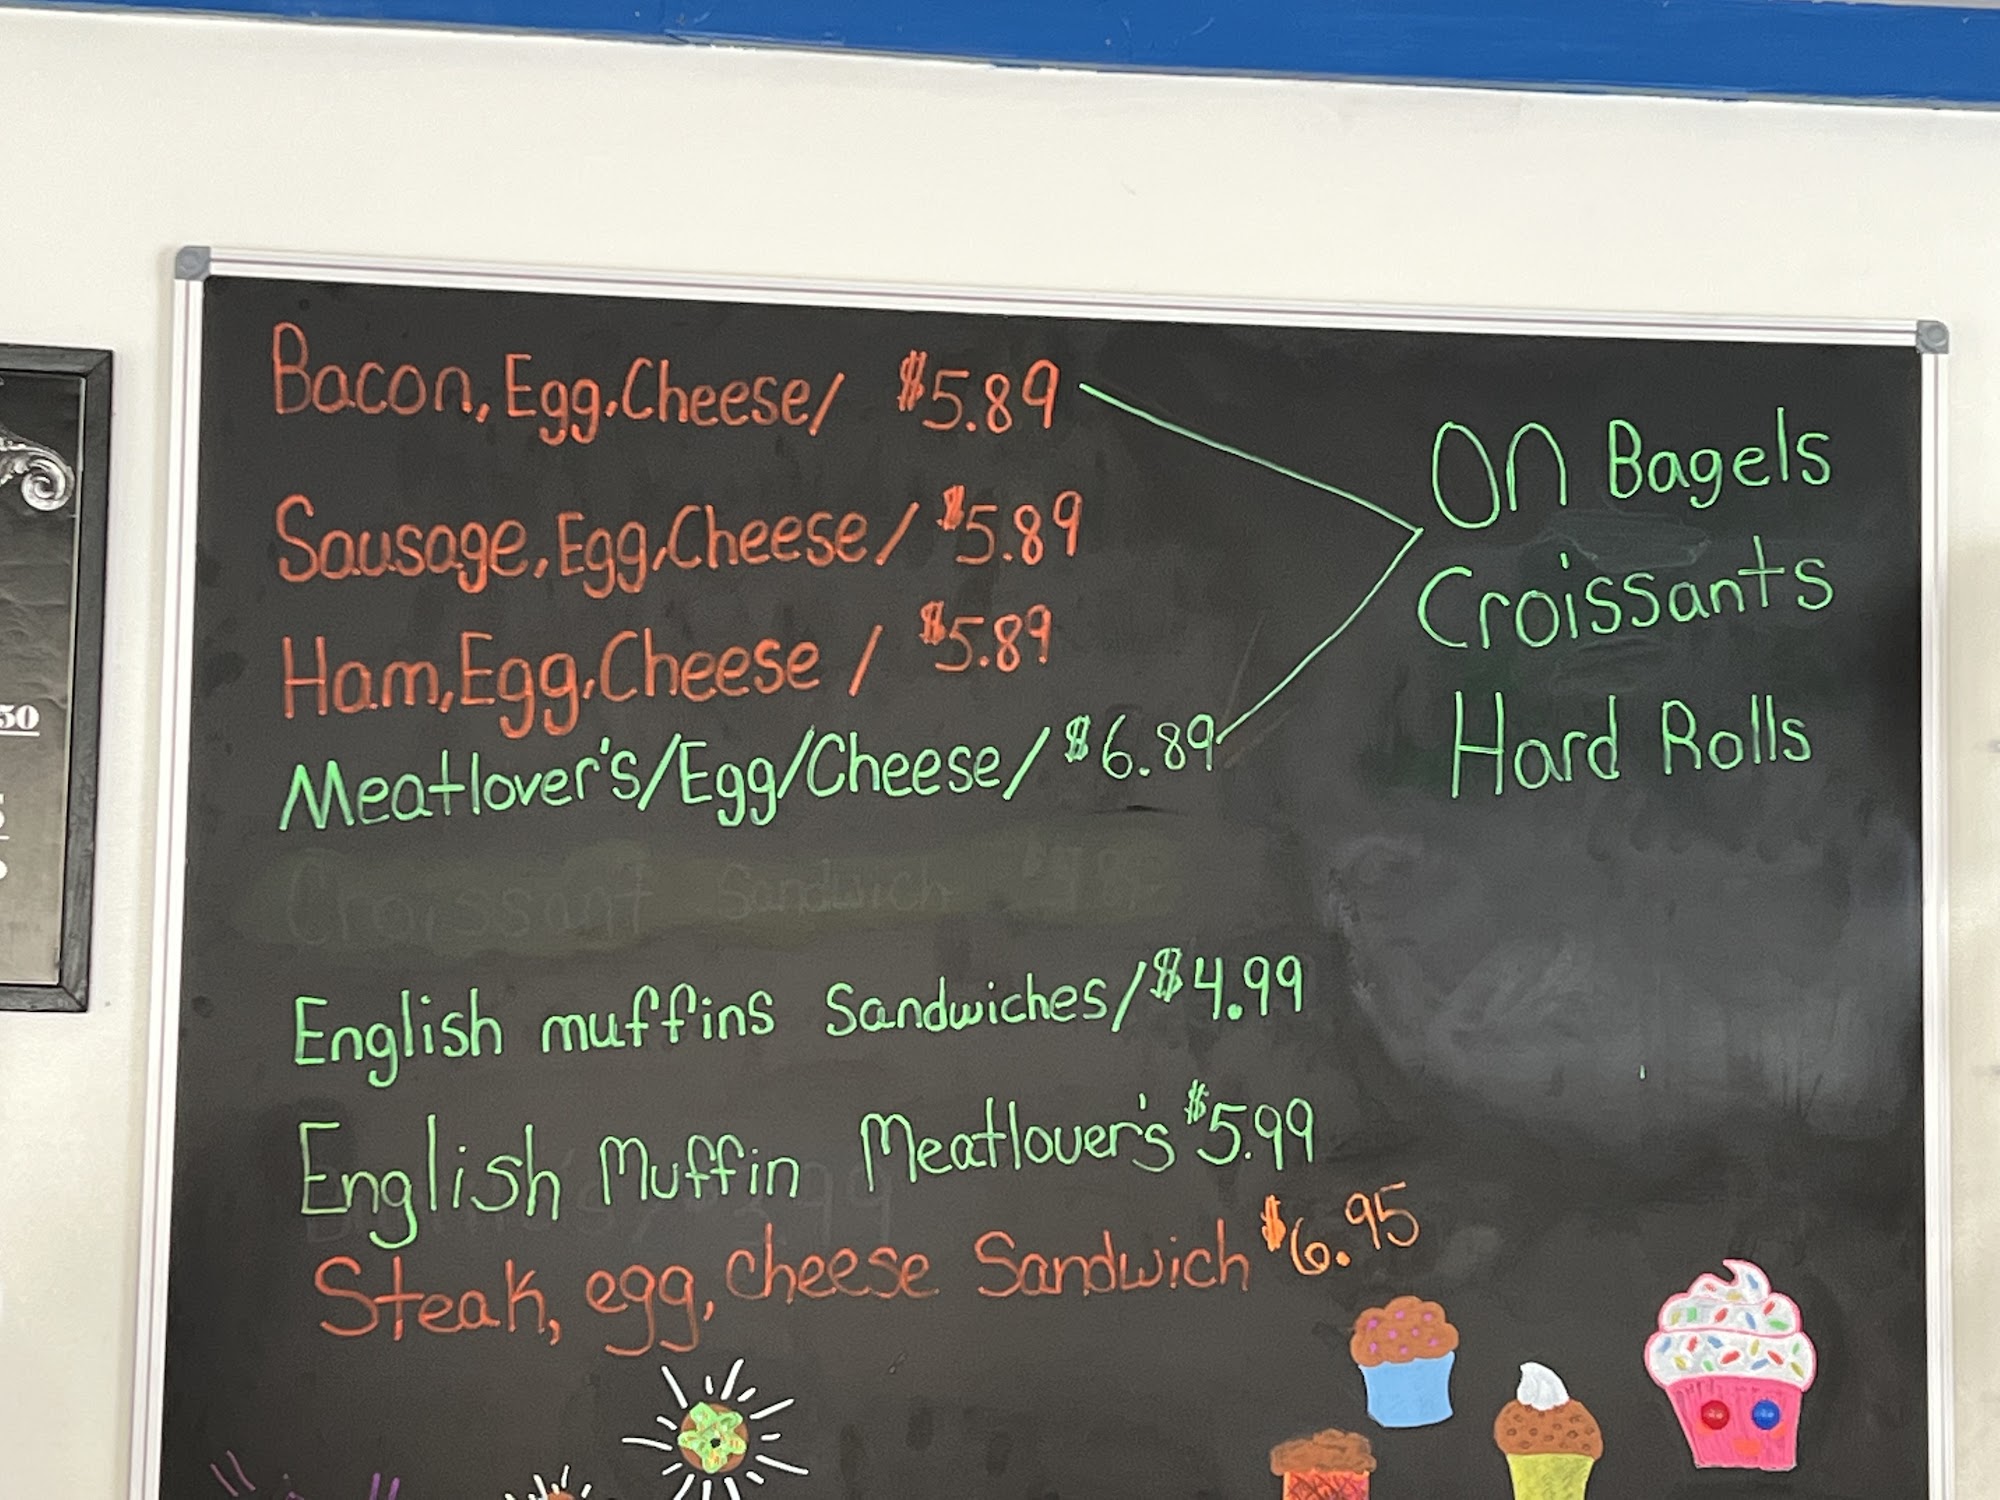 Bacon, Egg, Cheese/ $5.89
Sausage, Egg, Cheese/ $5.89
Ham, Egg, Cheese / $5.89
Meatlover's/Egg/Cheese/ $6.89
On Bagels
Croissants
Hard Rolls
Croissant Sandwich
English muffins Sandwiches/$4.99
English Muffin Meatlover's $5.99
Steak, egg, cheese Sandwich $6.95
50